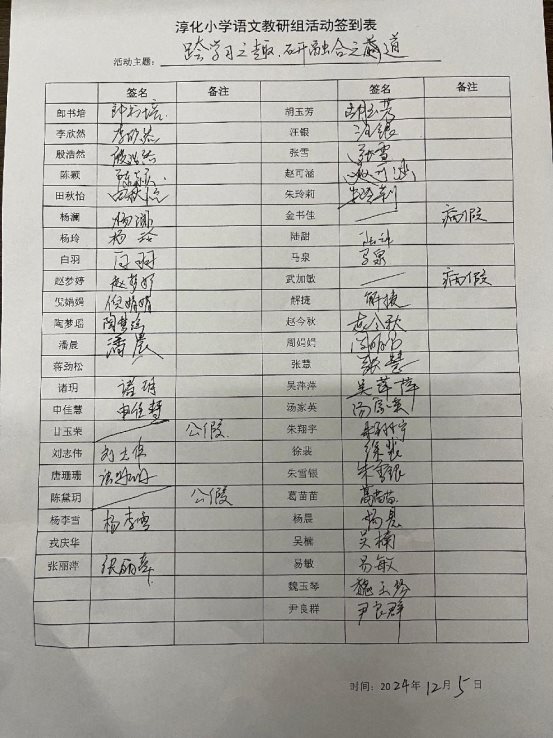 淳化小学语文教研组活动签到表
活动主题: 跨学习之趣,研融合之道
签名 备注 签名 备注
郎书培 郎书培 胡玉芳 胡玉芳
李欣然 李欣然 汪银 汪银
殷浩然 殷浩然 张雪 张雪
陈颖 陈颖 赵可涵 赵可涵
田秋怡 田秋怡 朱玲莉
杨澜 杨澜 金书佳 病假
杨玲 杨玲 陆甜 陆甜
白羽 白羽 马泉 马泉
赵梦婷 赵梦婷 武加敏 病假
倪娟娟 倪娟娟 解捷 解捷
陶梦瑶 陶梦瑶 赵今秋 赵今秋
潘晨 潘晨 周娟娟
蒋劲松 张慧 张慧
诸玥 诸玥 吴萍萍 吴萍萍
申佳慧 申佳慧 汤家英 汤家英
甘玉荣 公假 朱翔宇 朱翔宇
刘志伟 刘志伟 徐裴 徐裴
唐珊珊 唐珊珊 朱雪银 朱雪银
陈黛玥 公假 葛苗苗 葛苗苗
杨李雪 杨李雪 杨晨 杨晨
戎庆华 吴楠 吴楠
张丽萍 张丽萍 易敏 易敏
魏玉琴 魏玉琴
尹良群 尹良群
时间: 2024年12月5日